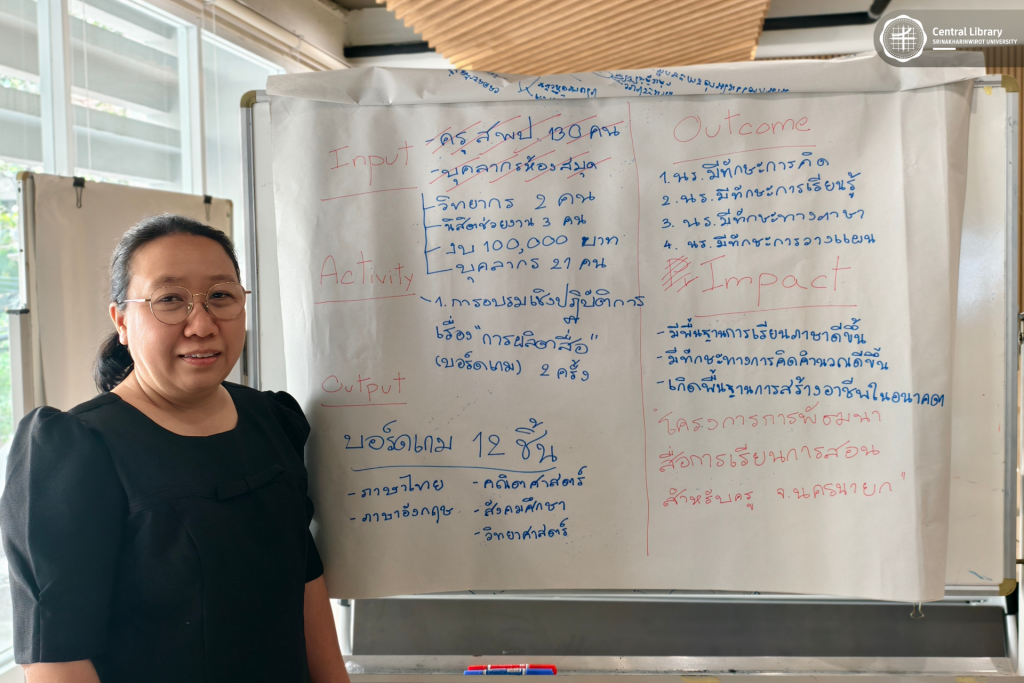 Central Library
SRINAKHARINWIROT UNIVERSITY
Input
- ครู ส.พป. 130 คน
- บุคลากรห้องสมุด
วิทยากร 2 คน
นิสิตช่วยงาน 3 คน
งบ 100,000 บาท
บุคลากร 21 คน
Activity
- 1. การอบรมเชิงปฏิบัติการ
เรื่อง "การผลิตสื่อ"
(บอร์ดเกม) 2 ครั้ง
Output
บอร์ดเกม 12 ชิ้น
- ภาษาไทย
- ภาษาอังกฤษ
- คณิตศาสตร์
- สังคมศึกษา
- วิทยาศาสตร์
Outcome
1. นร. มีทักษะการคิด
2. นร. มีทักษะการเรียนรู้
3. นร. มีทักษะทางภาษา
4. นร. มีทักษะการวางแผน
Impact
- มีพื้นฐานการเรียนภาษาดีขึ้น
- มีทักษะทางการคิดคำนวณดีขึ้น
- เกิดพื้นฐานการสร้างอาชีพในอนาคต
"โครงการการพัฒนา
สื่อการเรียนการสอน
สำหรับครู จ.นครนายก"